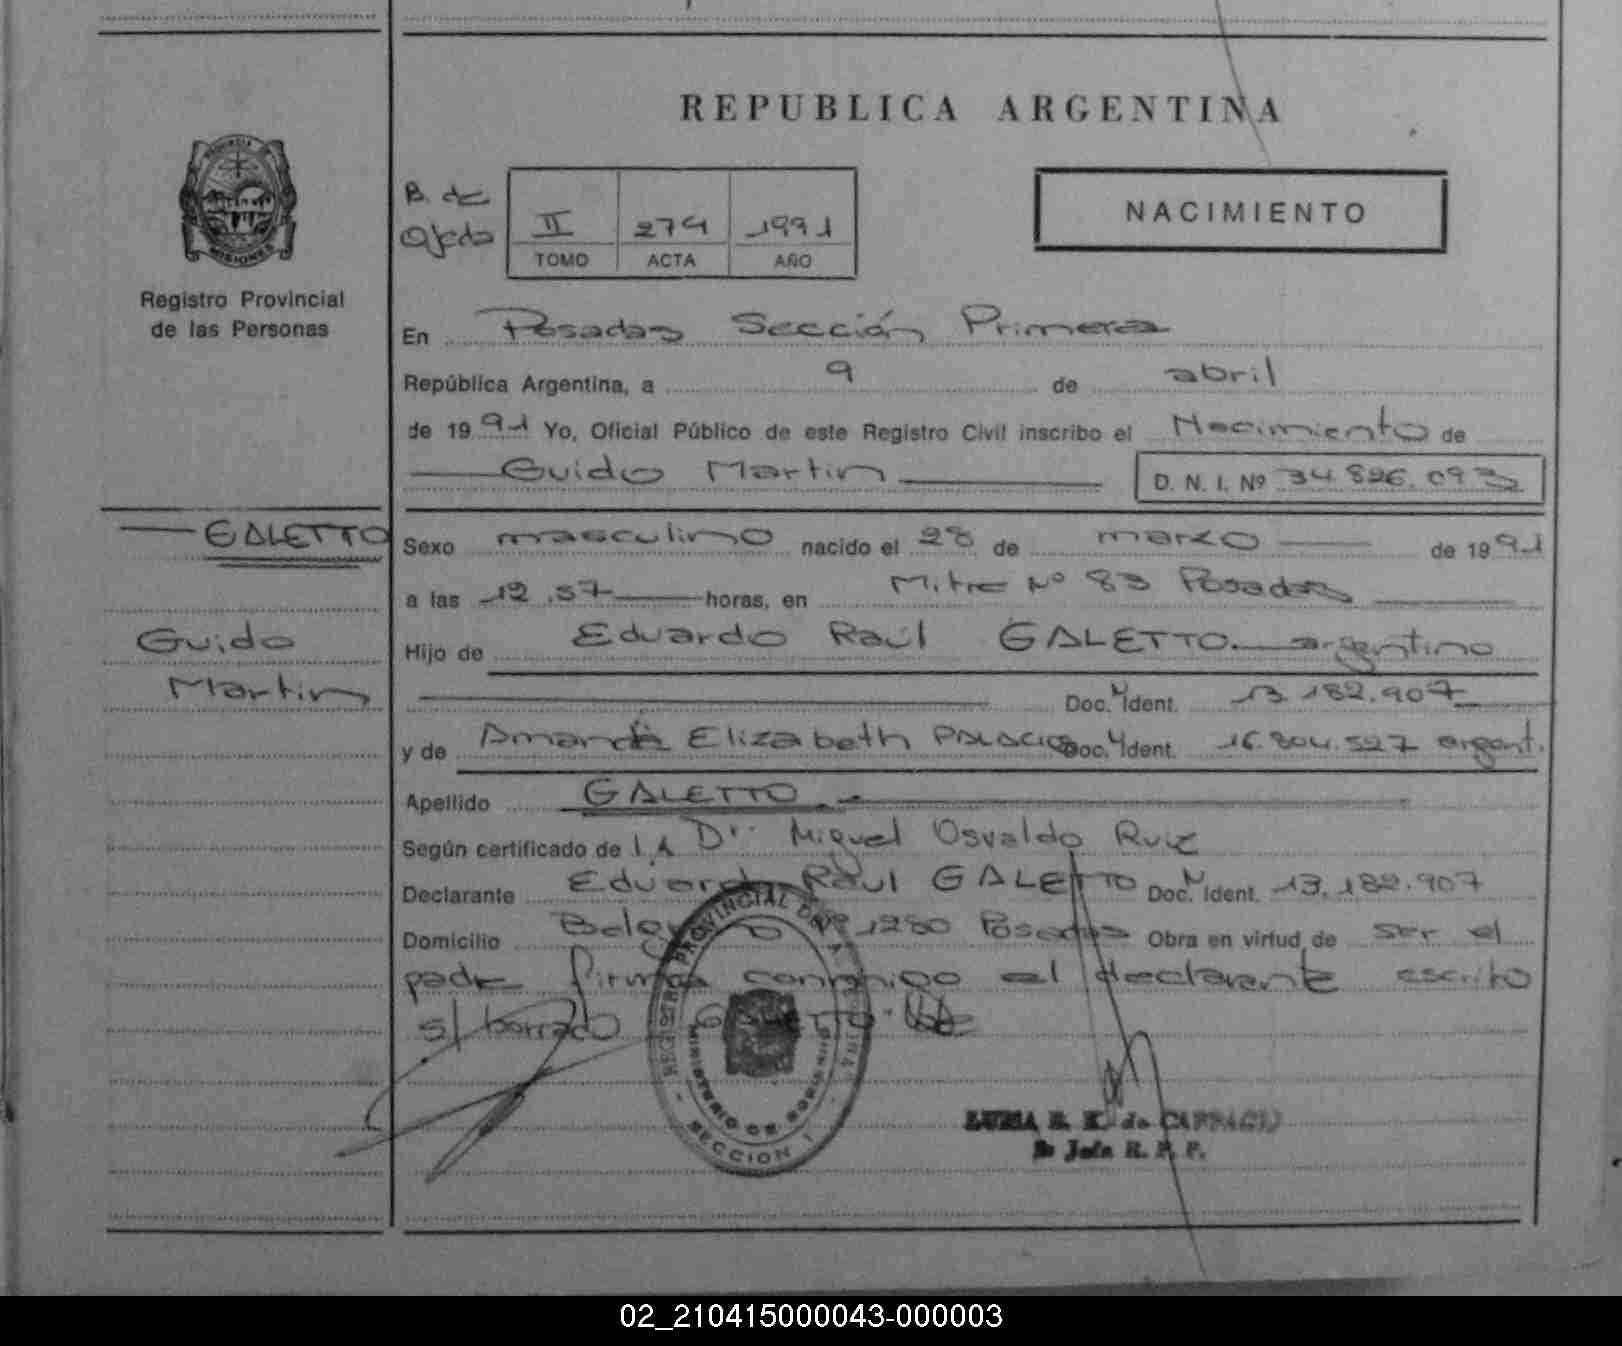 REPUBLICA ARGENTINA
PROVINCIA DE
MISIONES
Registro Provincial
de las Personas
B. de
Ojeda
II 274 1991
TOMO ACTA AÑO
NACIMIENTO
En Posadas Sección Primera
República Argentina, a 9 de abril
de 1991 Yo, Oficial Público de este Registro Civil inscribo el Nacimiento de
Guido Martin D. N. I. Nº 34.826.093
GALETTO
Guido
Martin
Sexo masculino nacido el 28 de marzo de 1991
a las 12.57 horas, en Mitre Nº 83 Posadas
Hijo de Eduardo Raúl GALETTO argentino
Doc. N Ident. 13.182.907
y de Amanda Elizabeth PALACIOS Doc. N Ident. 16.804.527 argent.
Apellido GALETTO
Según certificado de Dr. Miguel Osvaldo Ruiz
Declarante Eduardo Raúl GALETTO Doc. N Ident. 13.182.907
Domicilio Belgrano Nº 1280 Posadas Obra en virtud de ser el
padre firma conmigo el declarante escrito
s/ borrado GALETTO
REGISTRO PROVINCIAL DE LAS PERSONAS
MINISTERIO DE GOBIERNO
SECCION 1
R. K. de
Jefa R. P. P.
02_210415000043-000003